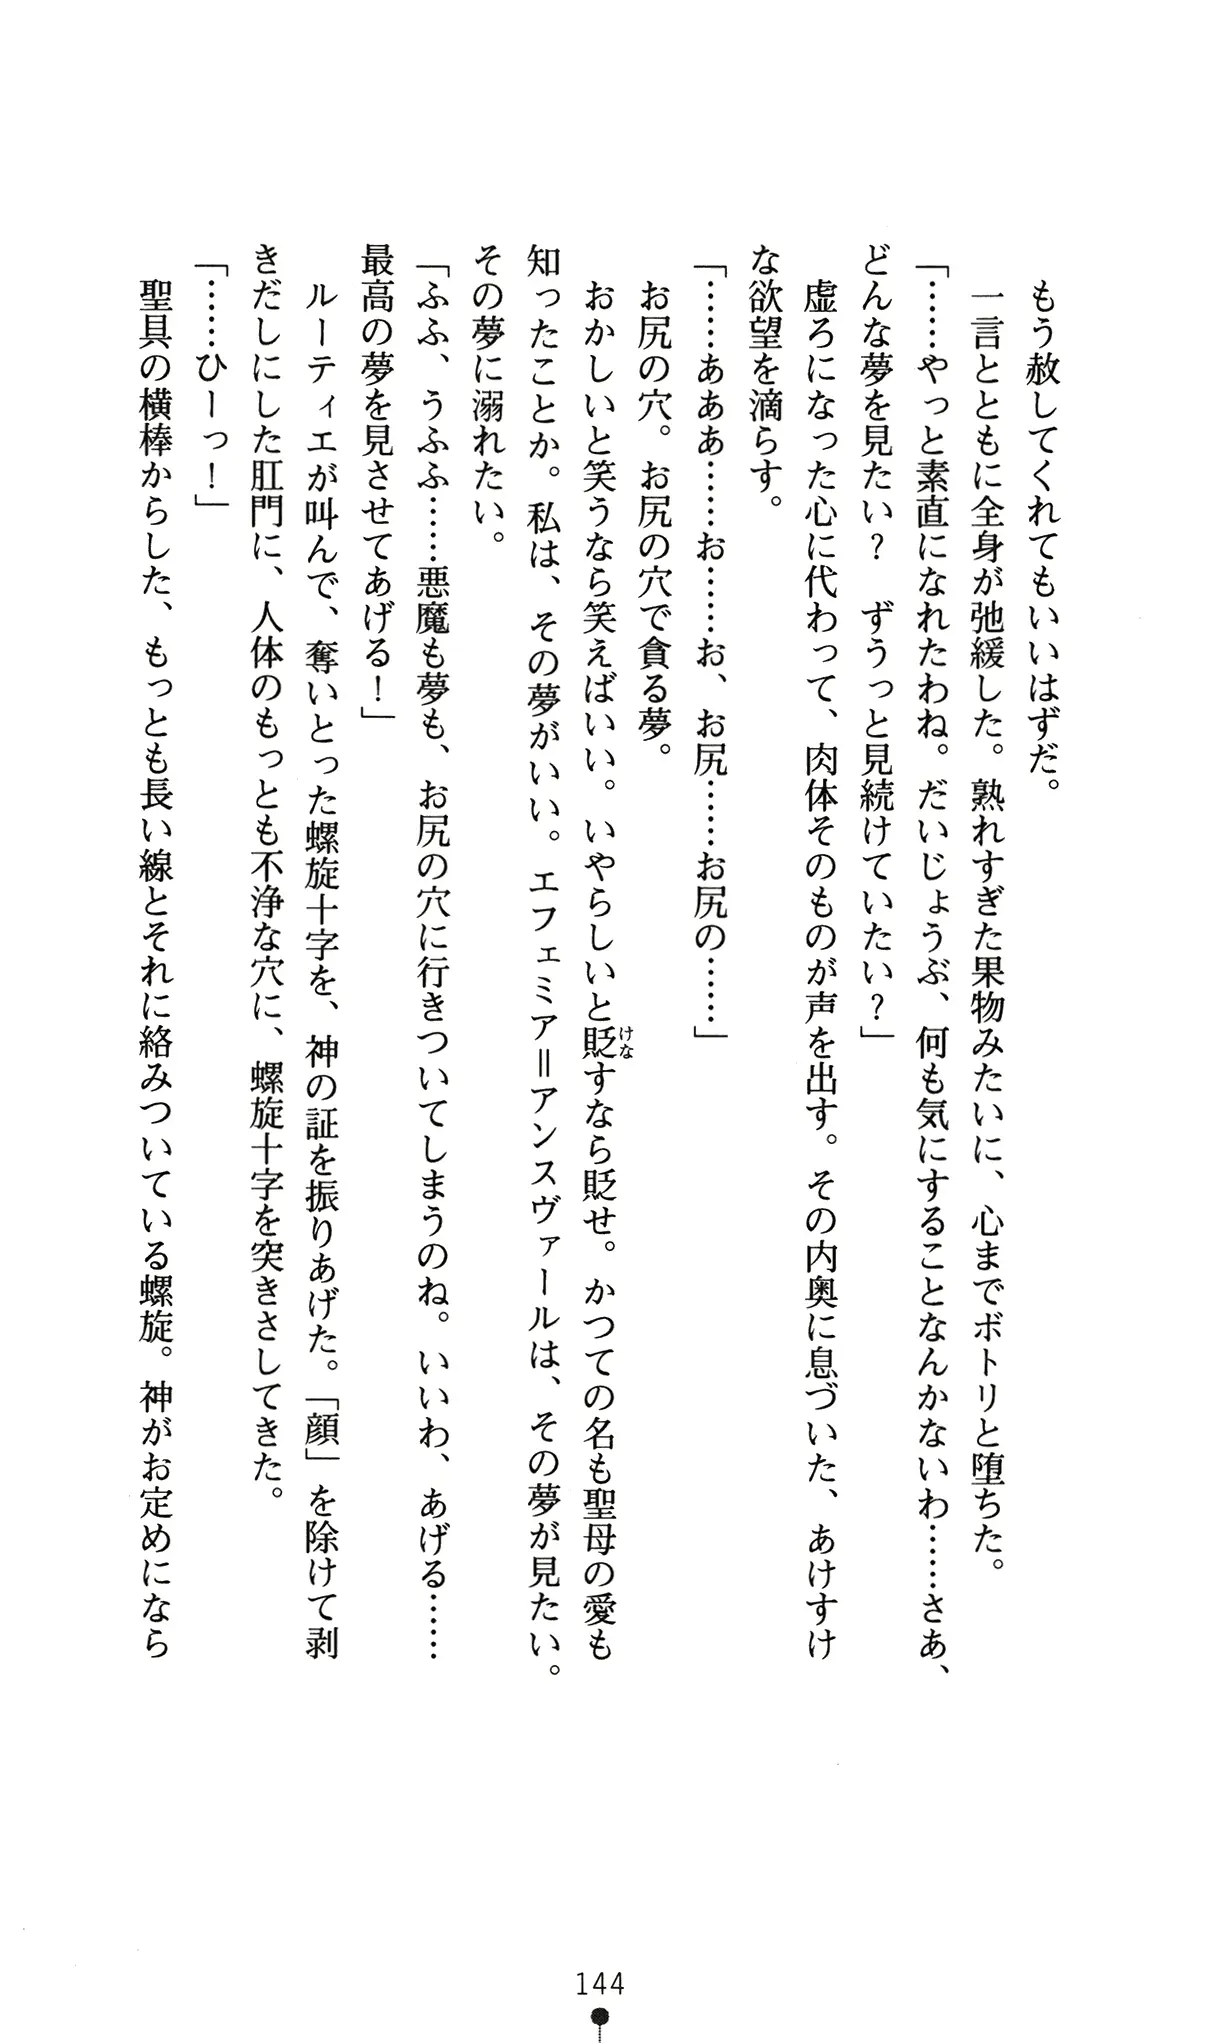 もう赦してくれてもいいはずだ。
一言とともに全身が弛緩した。熟れすぎた果物みたいに、心までボトリと堕ちた。
「……やっと素直になれたわね。だいじょうぶ、何も気にすることなんかないわ……さあ、
どんな夢を見たい？　ずうっと見続けていたい？」
虚ろになった心に代わって、肉体そのものが声を出す。その内奥に息づいた、あけすけ
な欲望を滴らす。
「……あああ……お……お、お尻……お尻の……」
お尻の穴。お尻の穴で貪る夢。
おかしいと笑うなら笑えばいい。いやらしいと貶すなら貶せ。かつての名も聖母の愛も
けな
知ったことか。私は、その夢がいい。エフェミア＝アンスヴァールは、その夢が見たい。
その夢に溺れたい。
「ふふ、うふふ……悪魔も夢も、お尻の穴に行きついてしまうのね。いいわ、あげる……
最高の夢を見させてあげる！」
ルーティエが叫んで、奪いとった螺旋十字を、神の証を振りあげた。「顔」を除けて剥
きだしにした肛門に、人体のもっとも不浄な穴に、螺旋十字を突きさしてきた。
「……ひーっ！」
聖具の横棒からした、もっとも長い線とそれに絡みついている螺旋。神がお定めになら
144